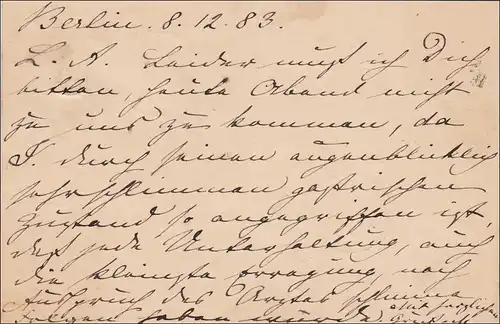 Berlin. 8. 12. 83.
L. A. Leider muß ich Dich
bitten, heute Abend nicht
zu uns zu kommen, da
J. durch seinen augenblicklich
sehr schlimmen gastrischen
Zustand so angegriffen ist,
daß jede Unterhaltung, auch
die kleinste Erregung, nach
Ausspruch des Arztes schlimme
Folgen haben würde. Mit herzlichem
Gruß